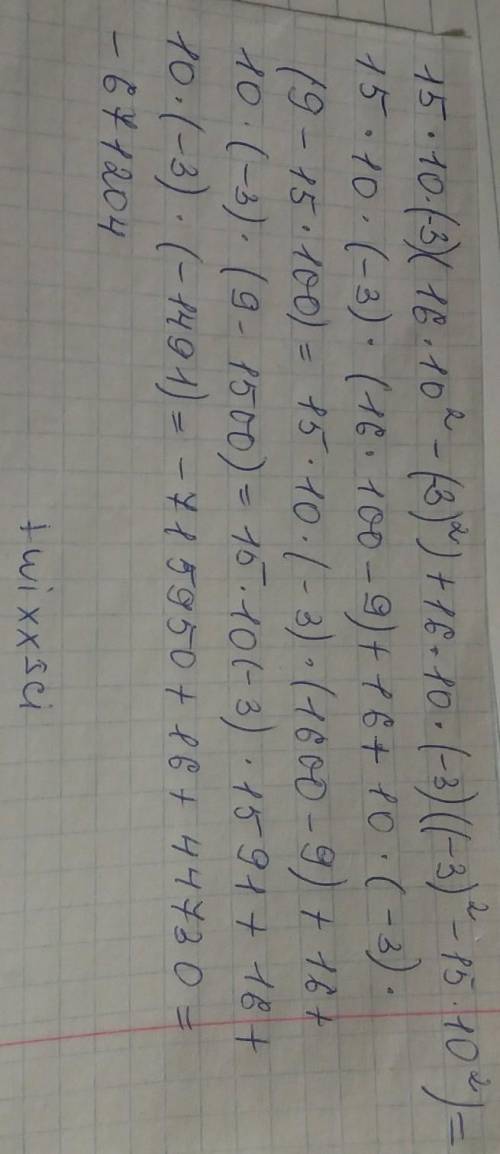 15·10·(-3)(16·10² - (3)²) + 16·10·(-3)((-3)² - 15·10²) =
15·10·(-3)·(16·100-9) + 16 + 10·(-3)·
(9-15·100) = 15·10·(-3)·(1600-9) + 16 +
10·(-3)·(9-1500) = 15·10(-3)·1591 + 16 +
10·(-3)·(-1491) = -715950 + 16 + 44730 =
-671204
twixxsci